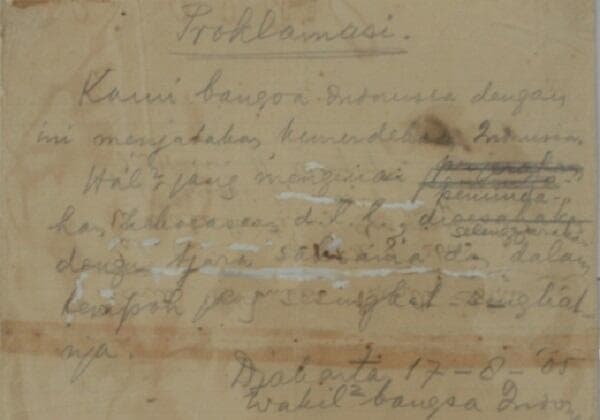 Proklamasi.
Kami bangsa Indonesia dengan
ini menjatakan kemerdekaan Indonesia.
Hal² jang mengenai penjerahan
peminda-
han kekoeasaan d.l.l., dioesahakan
diselenggarakan
dengan tjara saksama dan dalam
tempoh jang sesingkat-singkat-
nja.
Djakarta 17-8-'05
Wakil² bangsa Indo